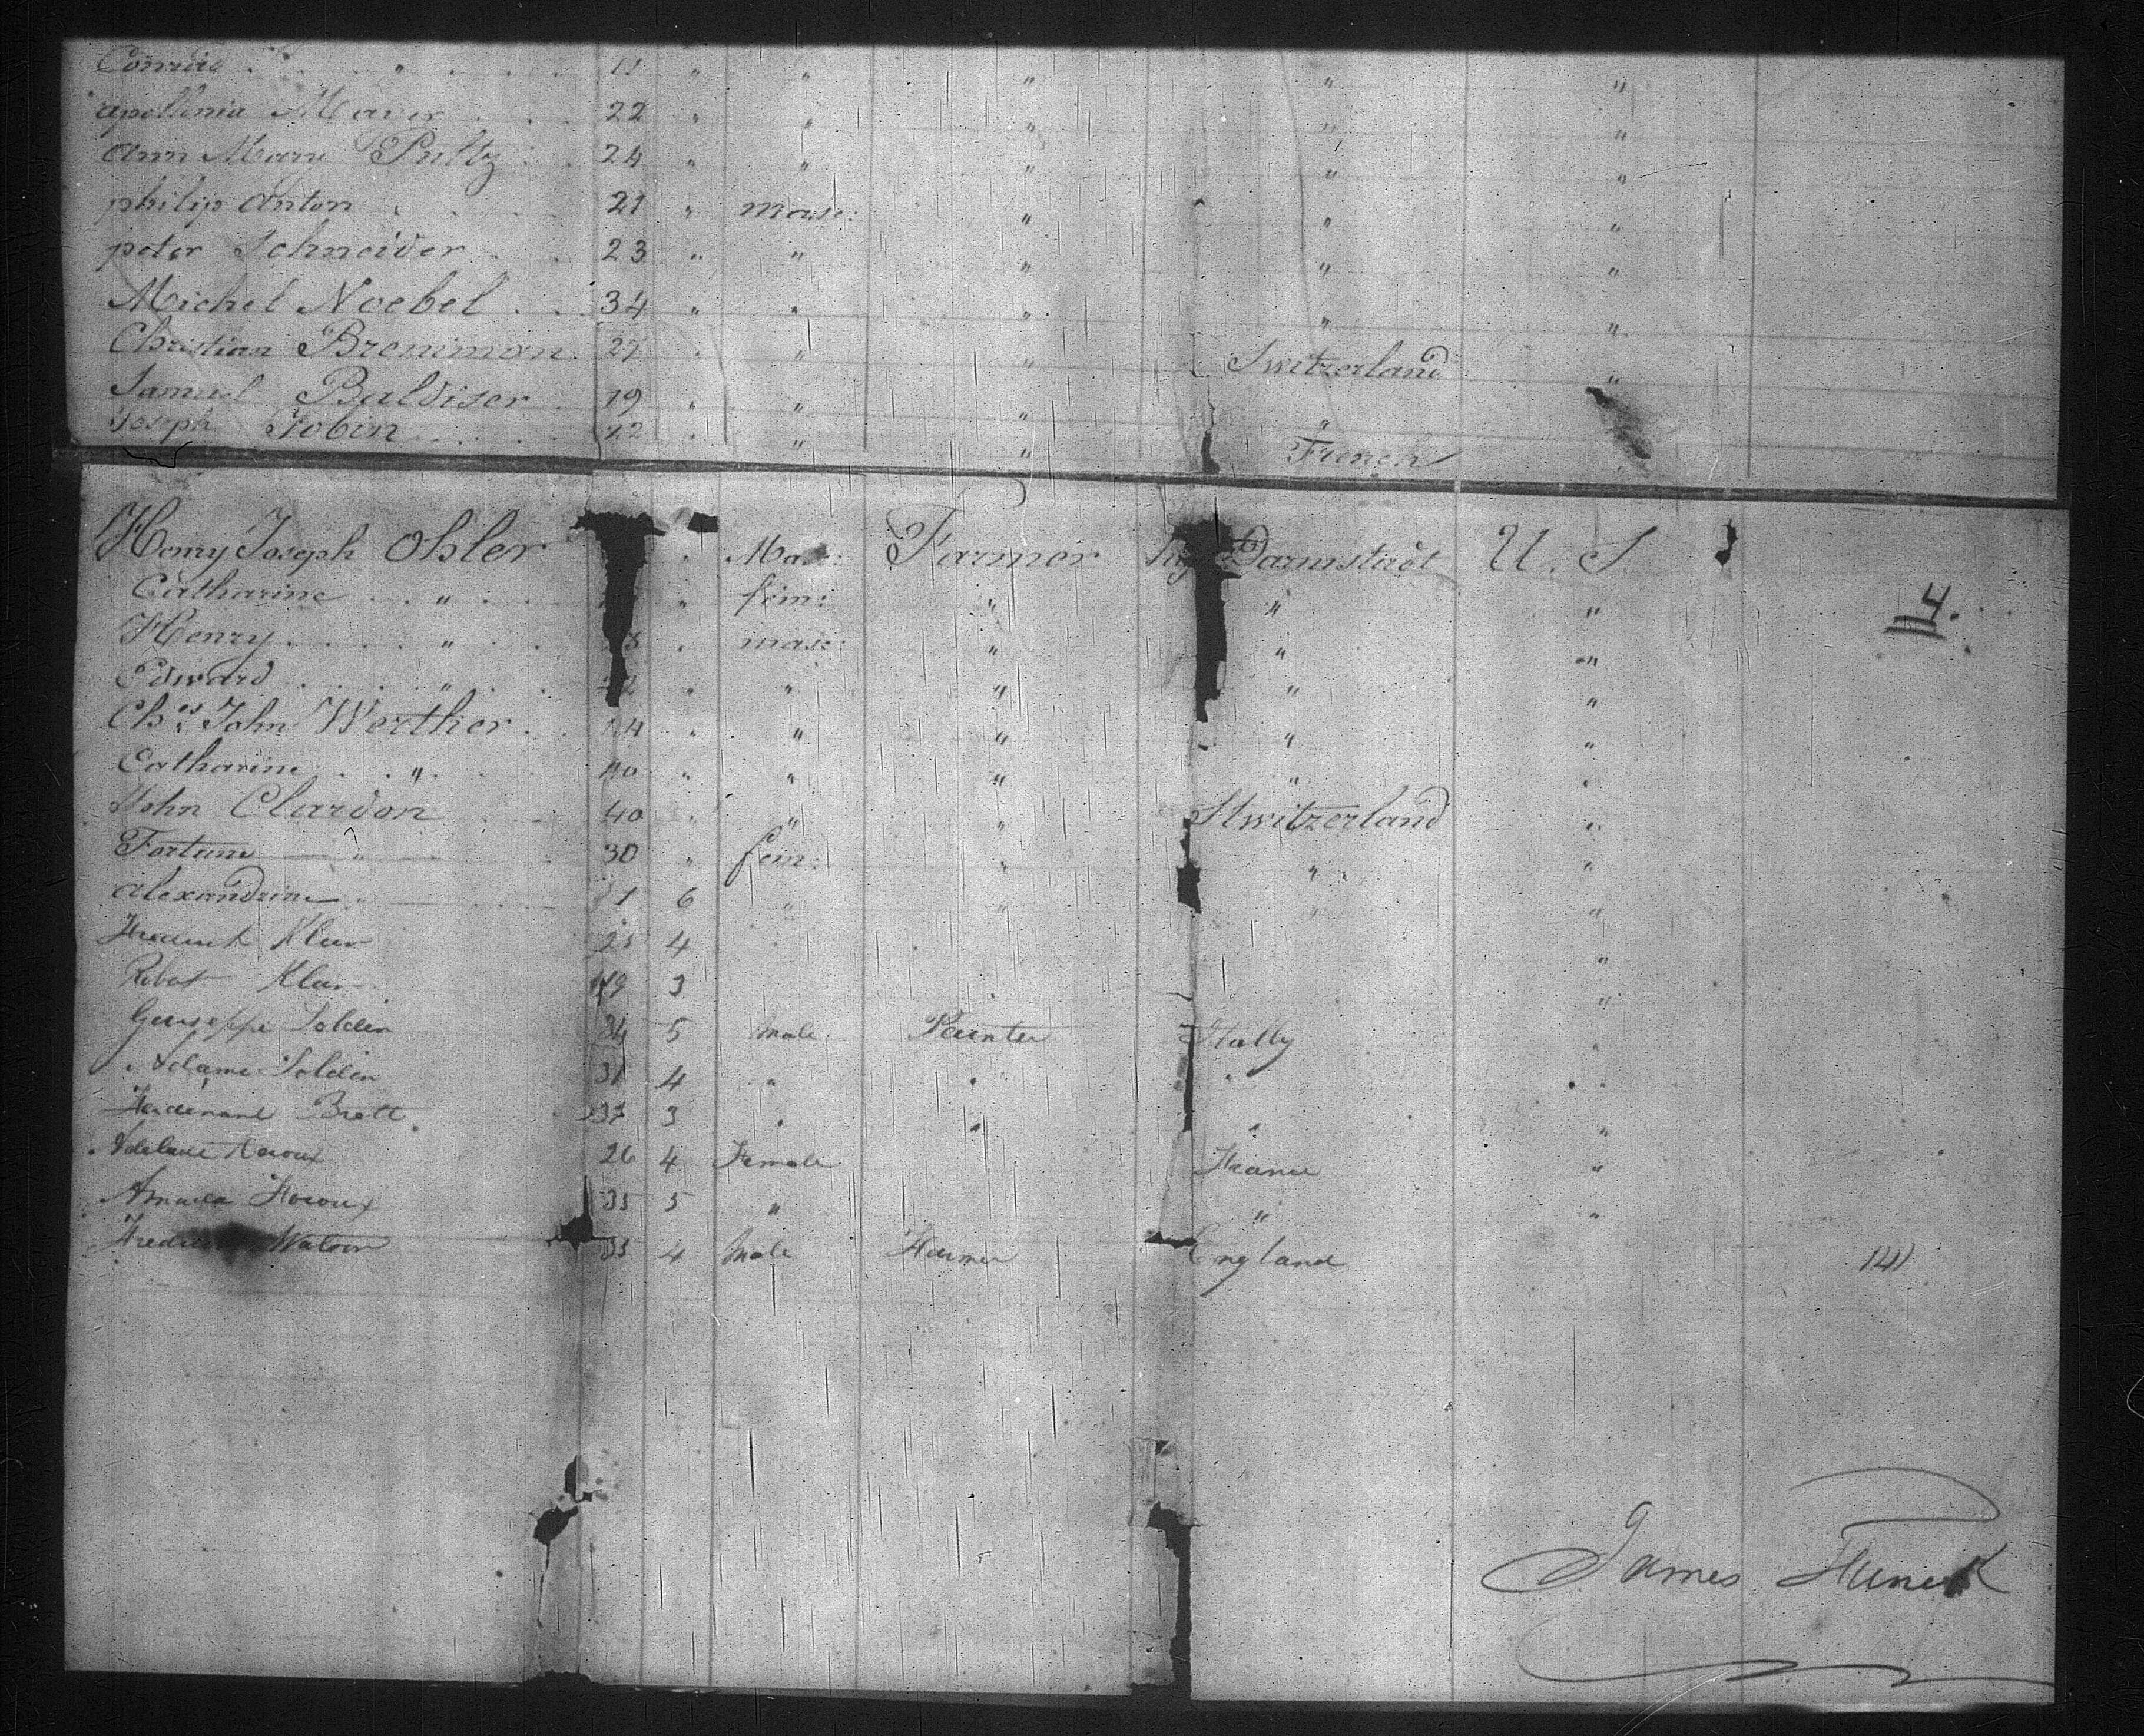 Conrad " 11 " " " " "
apollonia Mayer 22 " " " " "
ann Mary Pultz 24 " " " " "
philip Anton 21 " masc: " " "
peter Schneider 23 " " " " "
Michel Noebel 34 " " " " "
Christian Breniman 27 " " " Switzerland "
Samuel Baldiser 19 " " " " "
Joseph Tobin " " French "
Henry Joseph Ohler " Masc: Farmer Darmstadt U. S
Catharine " " fem: " " "
Henry " " masc: " " " 4.
Edward " " " " " "
Chs John Werther " " " " "
Catharine " 40 " " " " "
John Clardon 40 " " " Switzerland "
Fortune " 30 " fem: " " "
alexandrine " 1 6 " " " "
Frederick 25 4 "
Robert 19 3 "
Guiseppe Soldin 34 5 Male Painter Itally "
Adamo Soldin 31 4 " " " "
Ferdinand Brett 37 3 " " " "
Adelaide Heroux 26 4 Female France "
Heroux 35 5 " " "
Watson 33 4 Male Farmer England 141
James